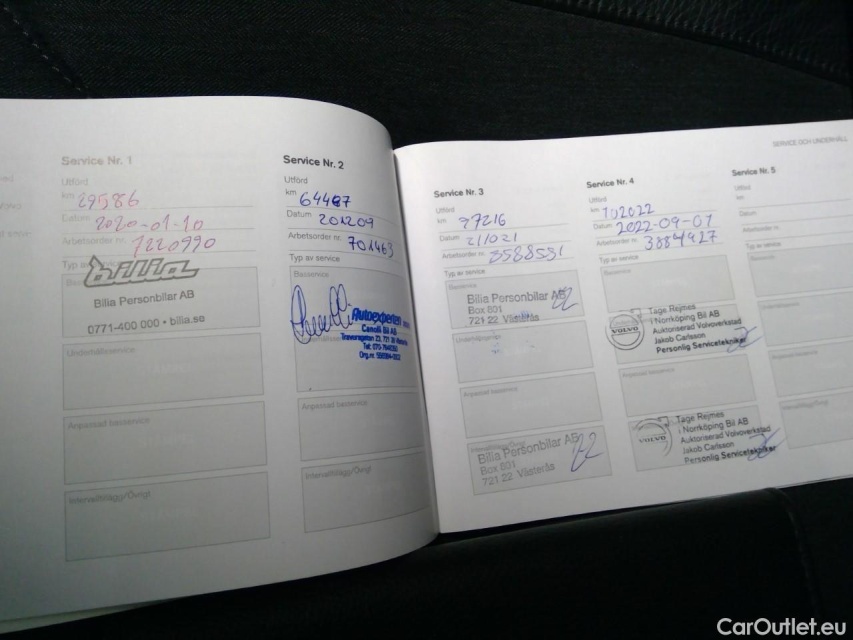 SERVICE OCH UNDERHÅLL
Service Nr. 1
Utförd
km 29586
Datum 2020-01-10
Arbetsorder nr. 1220990
Typ av
bilia
Bilia Personbilar AB
0771-400 000 • bilia.se
Underhållsservice
Anpassad basservice
Intervalltillägg/Övrigt
Service Nr. 2
Utförd
km 64487
Datum 201209
Arbetsorder nr. 701463
Typ av service
Basservice
Autoexperten
Canolli Bil AB
Anpassad basservice
Intervalltillägg/Övrigt
Service Nr. 3
Utförd
km 97216
Datum 211021
Arbetsorder nr. 3588531
Typ av service
Bilia Personbilar AB
Box 601
721 22 Västerås
Underhållsservice
Anpassad basservice
Intervalltillägg/Övrigt
Bilia Personbilar AB
Box 601
721 22 Västerås
Service Nr. 4
Utförd
km 102022
Datum 2022-09-01
Arbetsorder nr. 3884927
Typ av service
Basservice
VOLVO
Tage Rejmes
i Norrköping Bil AB
Auktoriserad Volvoverkstad
Jakob Carlsson
Personlig Servicetekniker
Anpassad basservice
VOLVO
Tage Rejmes
i Norrköping Bil AB
Auktoriserad Volvoverkstad
Jakob Carlsson
Personlig Servicetekniker
Service Nr. 5
Utförd
km
Datum
Arbetsorder nr.
Typ av service
Basservice
Underhållsservice
Anpassad basservice
Intervalltillägg/Övrigt
CarOutlet.eu